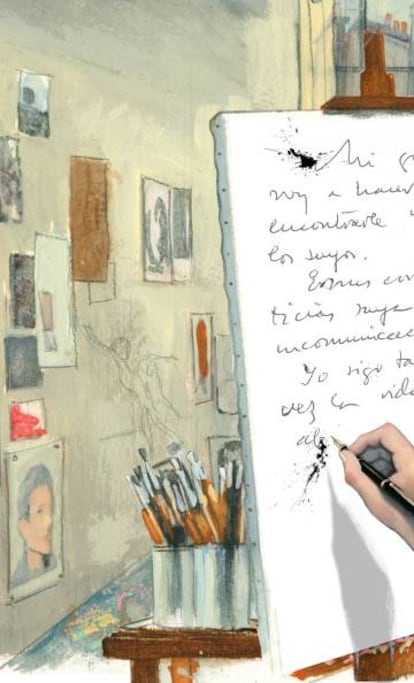 Mi
voy a hacer
encontrarle
los suyos.
ticias suya
incomunicac
Yo sigo ta
vez la vid